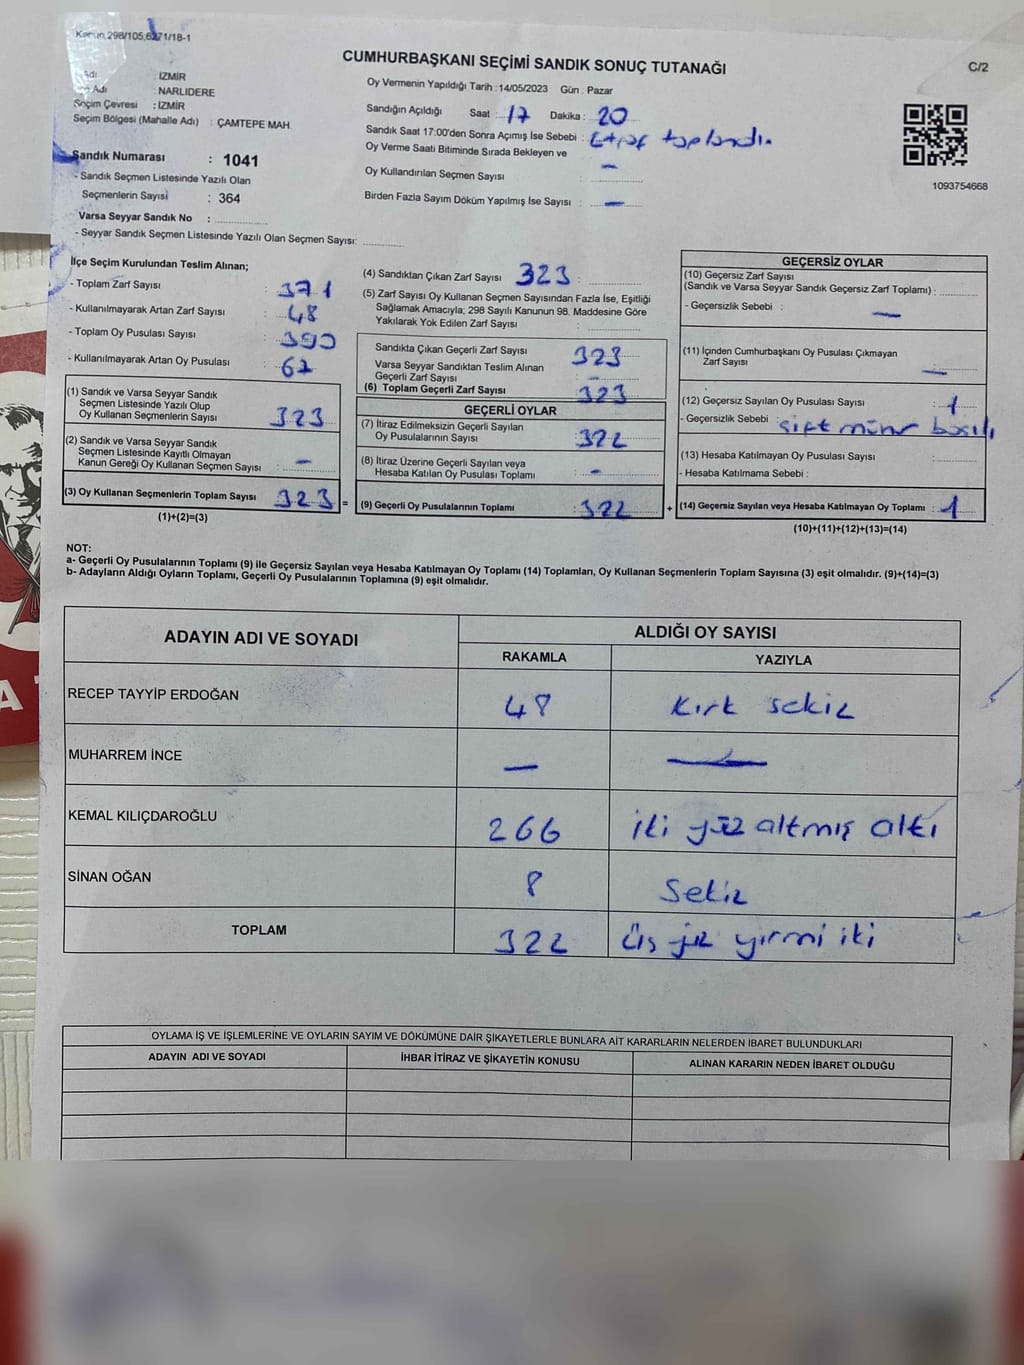 Kanun 298/105,6271/18-1
CUMHURBAŞKANI SEÇİMİ SANDIK SONUÇ TUTANAĞI
C/2
Adı : İZMİR
Adı : NARLIDERE
Seçim Çevresi : İZMİR
Seçim Bölgesi (Mahalle Adı) : ÇAMTEPE MAH.
Sandık Numarası : 1041
- Sandık Seçmen Listesinde Yazılı Olan
Seçmenlerin Sayısı : 364
Varsa Seyyar Sandık No :
- Seyyar Sandık Seçmen Listesinde Yazılı Olan Seçmen Sayısı:
Oy Vermenin Yapıldığı Tarih : 14/05/2023 Gün : Pazar
Sandığın Açıldığı Saat : 17 Dakika : 20
Sandık Saat 17:00'den Sonra Açımış İse Sebebi : Etraf toplandı.
Oy Verme Saati Bitiminde Sırada Bekleyen ve
Oy Kullandırılan Seçmen Sayısı : —
Birden Fazla Sayım Döküm Yapılmış İse Sayısı : —
1093754668
İlçe Seçim Kurulundan Teslim Alınan;
- Toplam Zarf Sayısı : 371
- Kullanılmayarak Artan Zarf Sayısı : 48
- Toplam Oy Pusulası Sayısı : 390
- Kullanılmayarak Artan Oy Pusulası : 67
(1) Sandık ve Varsa Seyyar Sandık
Seçmen Listesinde Yazılı Olup
Oy Kullanan Seçmenlerin Sayısı : 323
(2) Sandık ve Varsa Seyyar Sandık
Seçmen Listesinde Kayıtlı Olmayan
Kanun Gereği Oy Kullanan Seçmen Sayısı : —
(3) Oy Kullanan Seçmenlerin Toplam Sayısı : 323 =
(1)+(2)=(3)
(4) Sandıktan Çıkan Zarf Sayısı 323 :
(5) Zarf Sayısı Oy Kullanan Seçmen Sayısından Fazla İse, Eşitliği
Sağlamak Amacıyla; 298 Sayılı Kanunun 98. Maddesine Göre
Yakılarak Yok Edilen Zarf Sayısı :
Sandıkta Çıkan Geçerli Zarf Sayısı : 323
Varsa Seyyar Sandıktan Teslim Alınan
Geçerli Zarf Sayısı : —
(6) Toplam Geçerli Zarf Sayısı : 323
GEÇERLİ OYLAR
(7) İtiraz Edilmeksizin Geçerli Sayılan
Oy Pusulalarının Sayısı : 322
(8) İtiraz Üzerine Geçerli Sayılan veya
Hesaba Katılan Oy Pusulası Toplamı : —
(9) Geçerli Oy Pusulalarının Toplamı : 322 +
GEÇERSİZ OYLAR
(10) Geçersiz Zarf Sayısı
(Sandık ve Varsa Seyyar Sandık Geçersiz Zarf Toplamı) :
- Geçersizlik Sebebi : —
(11) İçinden Cumhurbaşkanı Oy Pusulası Çıkmayan
Zarf Sayısı : —
(12) Geçersiz Sayılan Oy Pusulası Sayısı : 1
- Geçersizlik Sebebi : çift mühür basılı
(13) Hesaba Katılmayan Oy Pusulası Sayısı :
- Hesaba Katılmama Sebebi :
(14) Geçersiz Sayılan veya Hesaba Katılmayan Oy Toplamı : 1
(10)+(11)+(12)+(13)=(14)
NOT:
a- Geçerli Oy Pusulalarının Toplamı (9) ile Geçersiz Sayılan veya Hesaba Katılmayan Oy Toplamı (14) Toplamları, Oy Kullanan Seçmenlerin Toplam Sayısına (3) eşit olmalıdır. (9)+(14)=(3)
b- Adayların Aldığı Oyların Toplamı, Geçerli Oy Pusulalarının Toplamına (9) eşit olmalıdır.
ADAYIN ADI VE SOYADI ALDIĞI OY SAYISI
RAKAMLA YAZIYLA
RECEP TAYYİP ERDOĞAN 48 Kırk sekiz
MUHARREM İNCE — —
KEMAL KILIÇDAROĞLU 266 iki yüz altmış altı
SİNAN OĞAN 8 Sekiz
TOPLAM 322 üç yüz yirmi iki
OYLAMA İŞ VE İŞLEMLERİNE VE OYLARIN SAYIM VE DÖKÜMÜNE DAİR ŞİKAYETLERLE BUNLARA AİT KARARLARIN NELERDEN İBARET BULUNDUKLARI
ADAYIN ADI VE SOYADI İHBAR İTİRAZ VE ŞİKAYETİN KONUSU ALINAN KARARIN NEDEN İBARET OLDUĞU